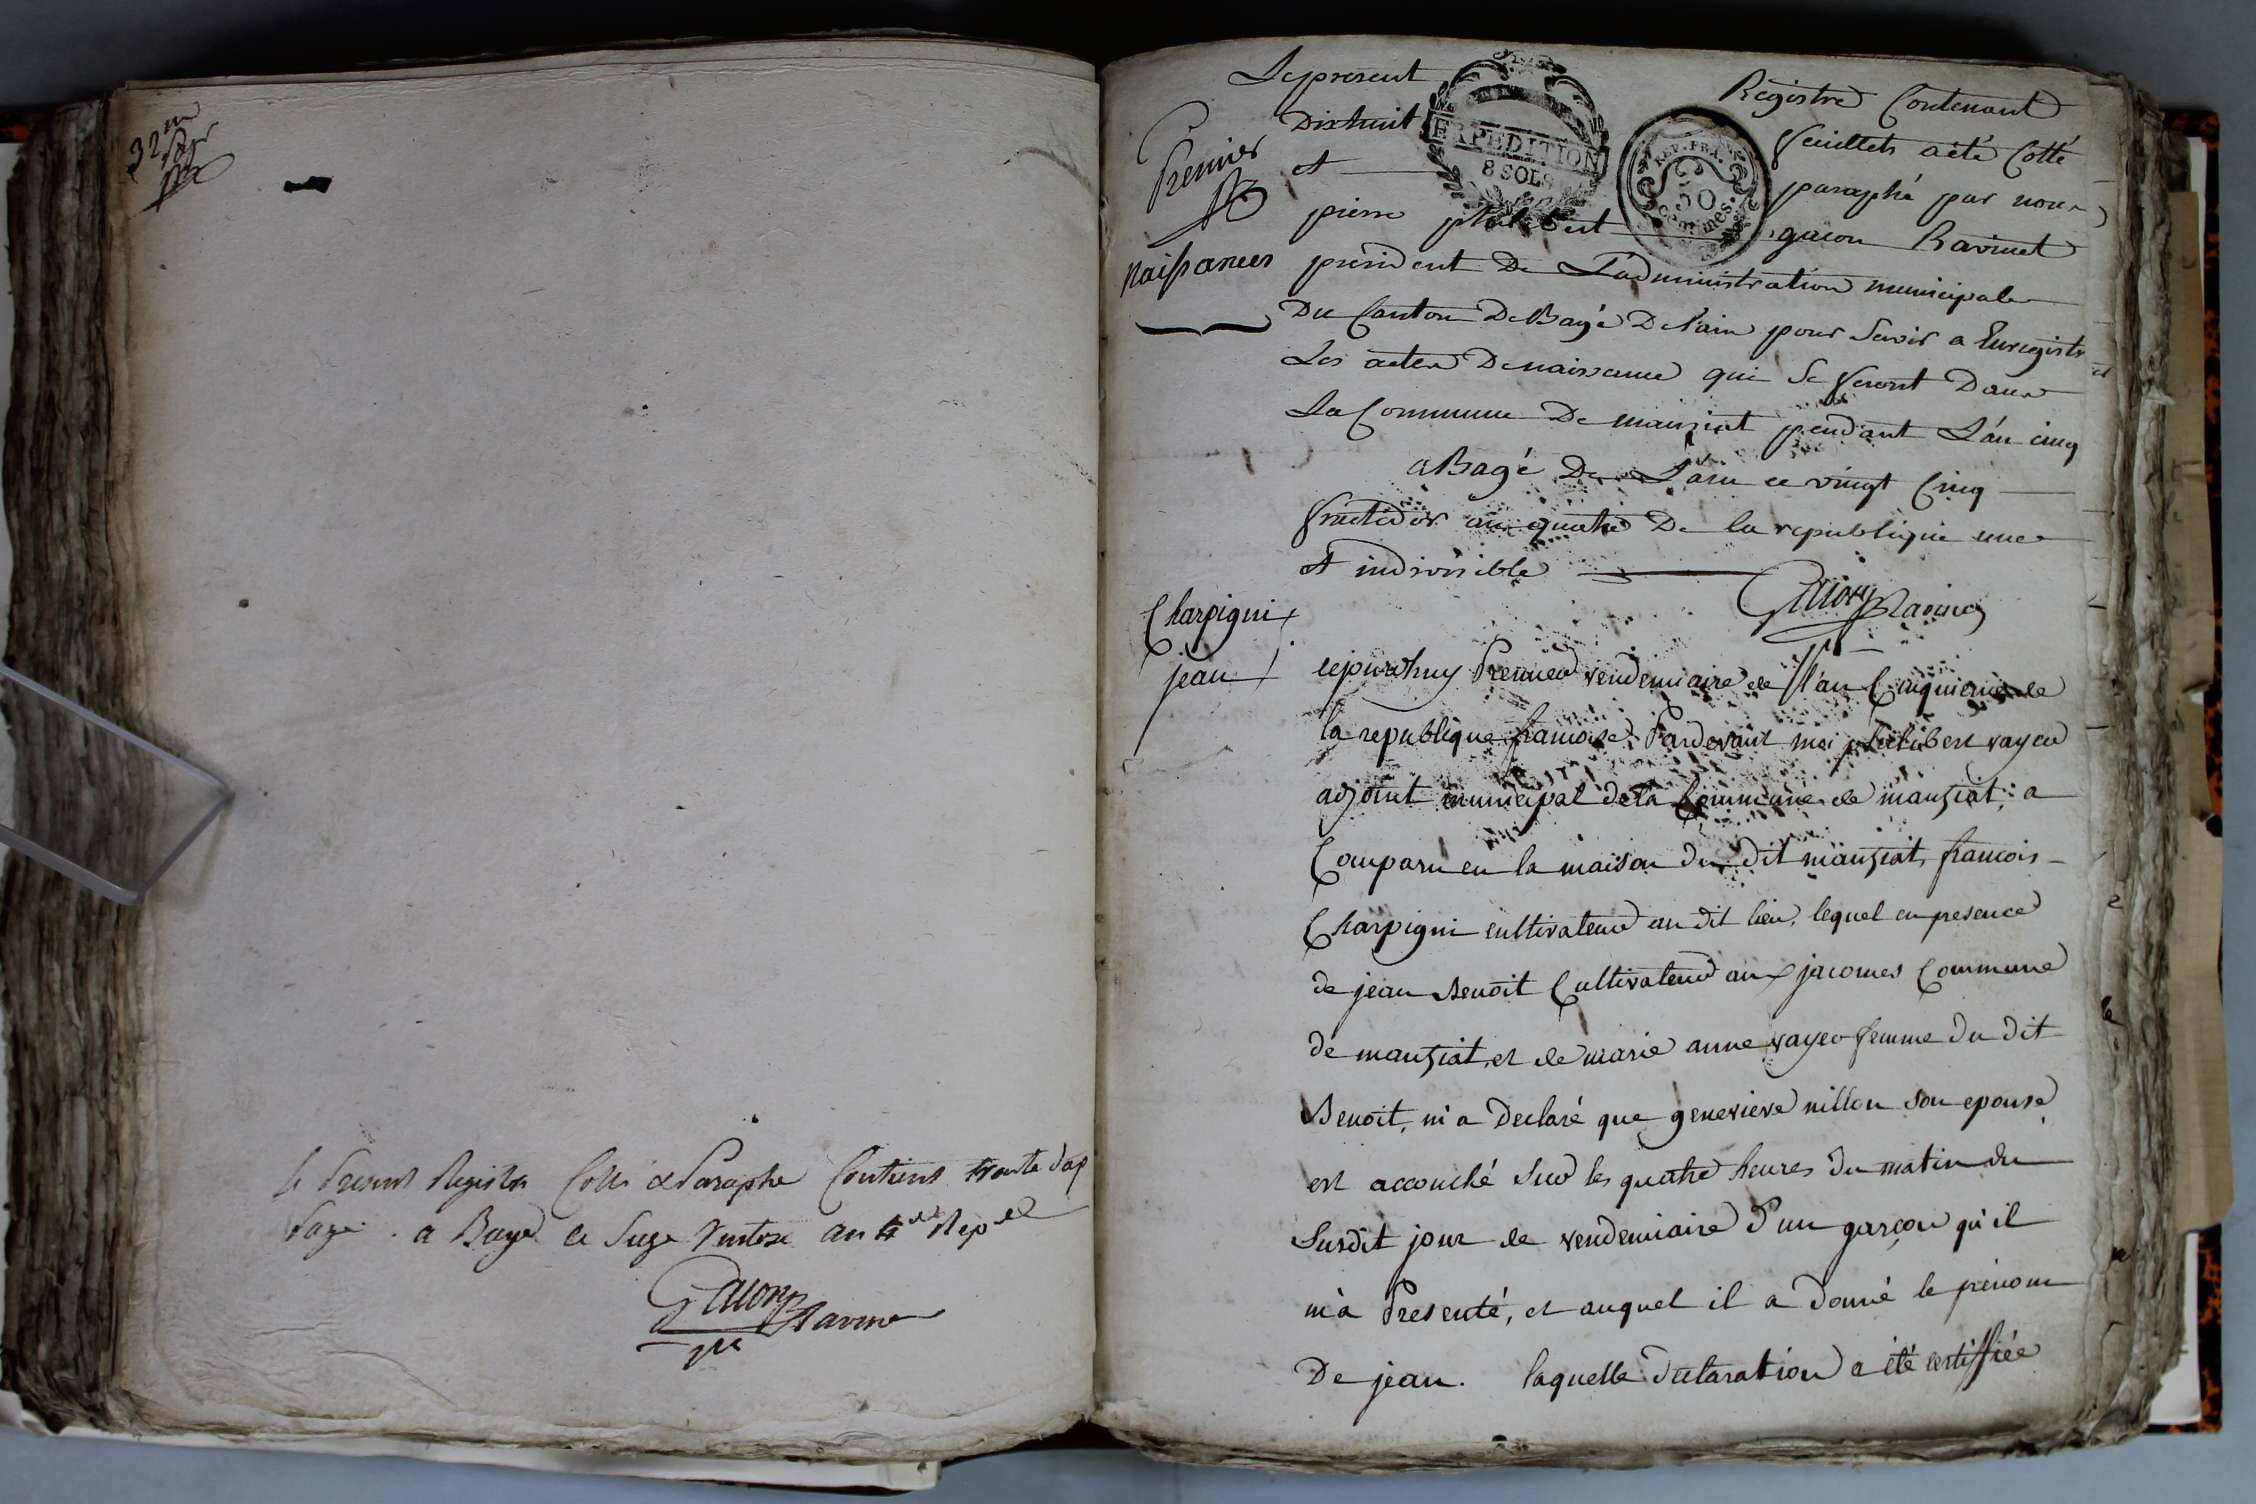 32me
page
le present Registre Cotté & Paraphé Contient trente deux
pages . a Bagé le Seize Ventose an 4eme Repele
Gacon Ravinet
Premier
Naissances
Le present Registre Contenant
Dixhuit feuillets a été Cotté
et paraphé par nous
pierre philibert gacon Ravinet
président De L'administration municipale
Du Canton De Bagé De l'ain pour Servir a Enregistrer
Les actes De naissance qui Se feront Dans
La Commune De mansiat pendant L'an cinq
a Bagé De L'ain ce vingt Cinq
fructidor an quatre De la republique une
et indivisible
Gacon Ravinet
EXPEDITION
8 SOLS
REP. FRA.
50
centimes.
Charpigni
jean
cejourdhuy Premier vendemiaire de l'an Cinquieme de
la republique francoise Pardevant moi philibert vayer
adjoint municipal de la Commune de mansiat; a
Comparu en la maison du dit mansiat, francois
Charpigni cultivateur au dit lieu, lequel en presence
de jean Benoit Cultivateur aux jacomes Commune
de mansiat, et de marie anne vayer femme du dit
Benoit, m'a Declaré que genevieve nillon son epouse
est accouché Sur les quatre heures du matin du
Susdit jour de vendemiaire d'un garçon qu'il
m'a Presenté, et auquel il a donné le prénom
De jean. laquelle declaration a été certiffiée